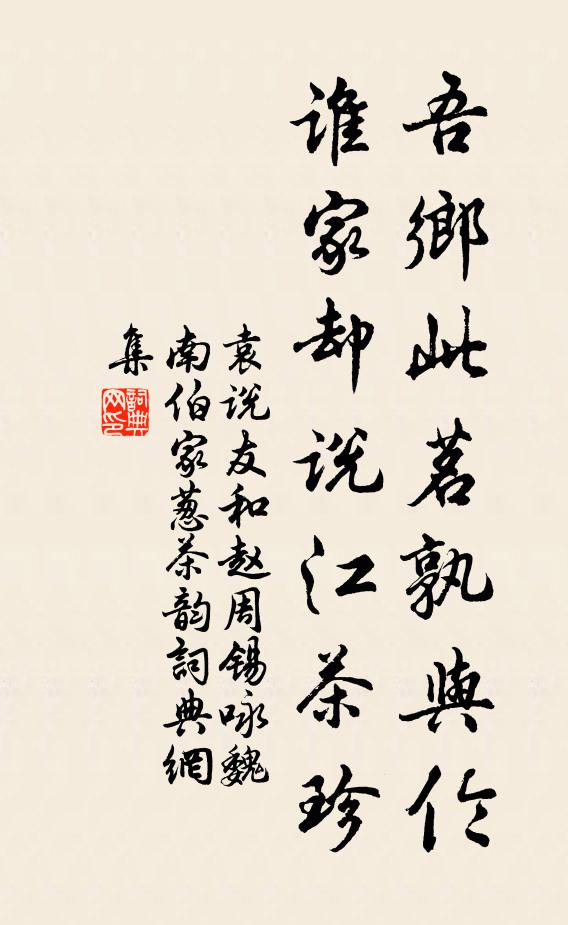 吾鄉此茗孰與伦
誰家却説江茶珍
袁説友和赵周锡咏魏
南伯家葱茶韵詞典網
集
詞典网印